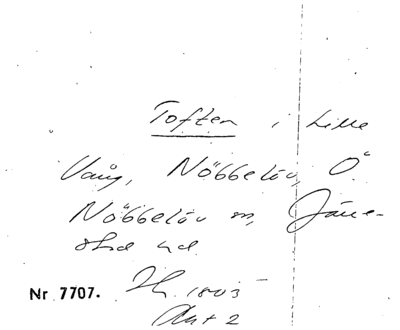 Toften i Lille
Vång, Nöbbelöv, Ö.
Nöbbelöv sn, Järre-
stad hd
Nr 7707. 1803
Akt 2